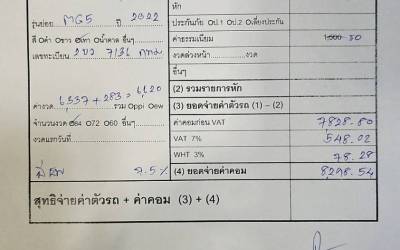 หัก
รุ่นย่อย MG5 ปี 2022
ประกันภัย ป.1 ป.2 เสี่ยงประกัน
สี ดำ ขาว เทา น้ำตาล อื่นๆ
ค่าธรรมเนียม 50
เลขทะเบียน 2ขว 7131 กทม.
งวดล่วงหน้า งวด
อื่นๆ
(2) รวมรายการหัก
ค่างวด 6,337 + 283 = 6,620 รวม ppi ew
(3) ยอดจ่ายค่าตัวรถ (1) – (2)
จำนวนงวด 84 72 60 อื่นๆ
ค่าคอมก่อน VAT 7828.80
งวดแรกวันที่
VAT 7% 548.02
WHT 3% 78.28
9.5%
(4) ยอดจ่ายค่าคอม 8298.54
สุทธิจ่ายค่าตัวรถ + ค่าคอม (3) + (4)